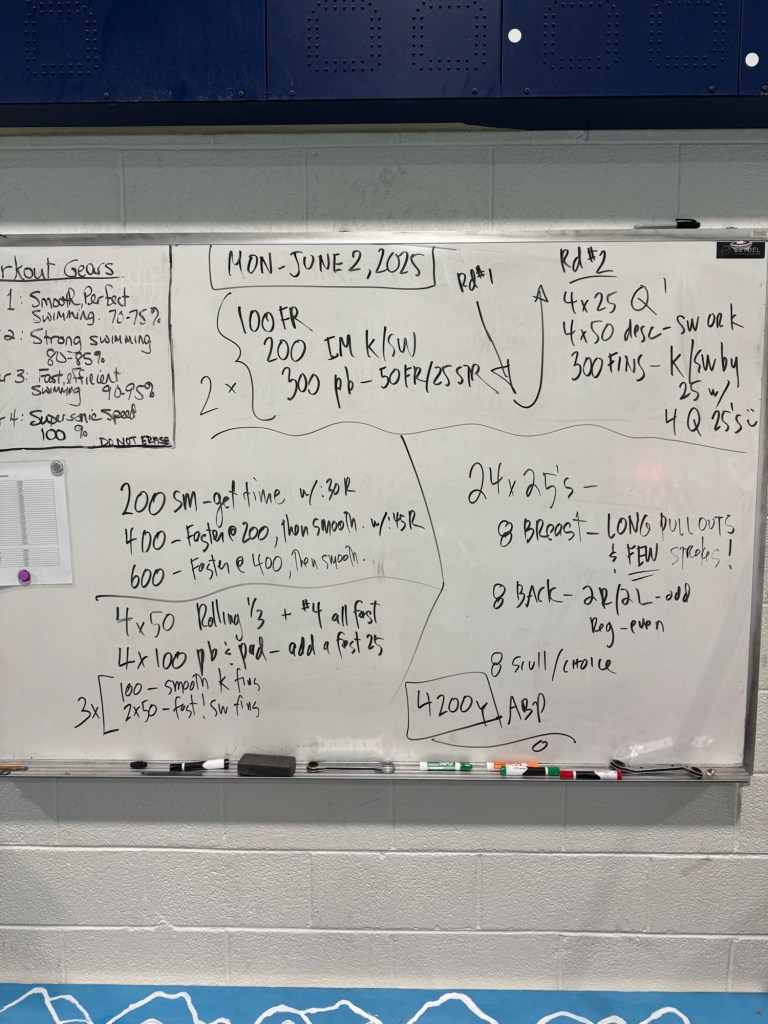 rkout Gears
1: Smooth, Perfect
Swimming. 70-75%
2: Strong swimming
80-85%
r 3: Fast, efficient
Swimming 90-95%
r 4: Supersonic Speed
100 %
DO NOT ERASE
MON-JUNE 2, 2025
100 FR
200 IM K/SW
2 x
300 pb - 50FR/25STR
Rd#1
Rd #2
4x25 Q
4x50 desc - SW OR K
300 FINS - K/SW by
25 w/
4 Q 25's
200 SM - get time w/:30R
400 - Faster @ 200, then smooth. w/:45R
600 - Faster @ 400, then smooth.
4x50 Rolling 1/3 + #4 all fast
4x100 pb & pad - add a fast 25
3x
100 - smooth K fins
2x50 - fast! SW fins
24x25's -
8 BREAST - LONG PULL OUTS
& FEW strokes!
8 BACK - 2R/2L - odd
Reg - even
8 Scull/CHOICE
4200y ABP